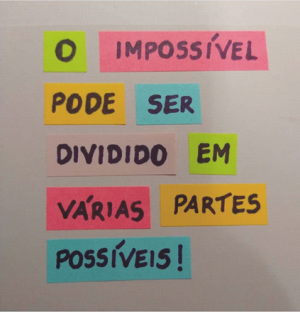 O IMPOSSÍVEL
PODE SER
DIVIDIDO EM
VÁRIAS PARTES
POSSÍVEIS!